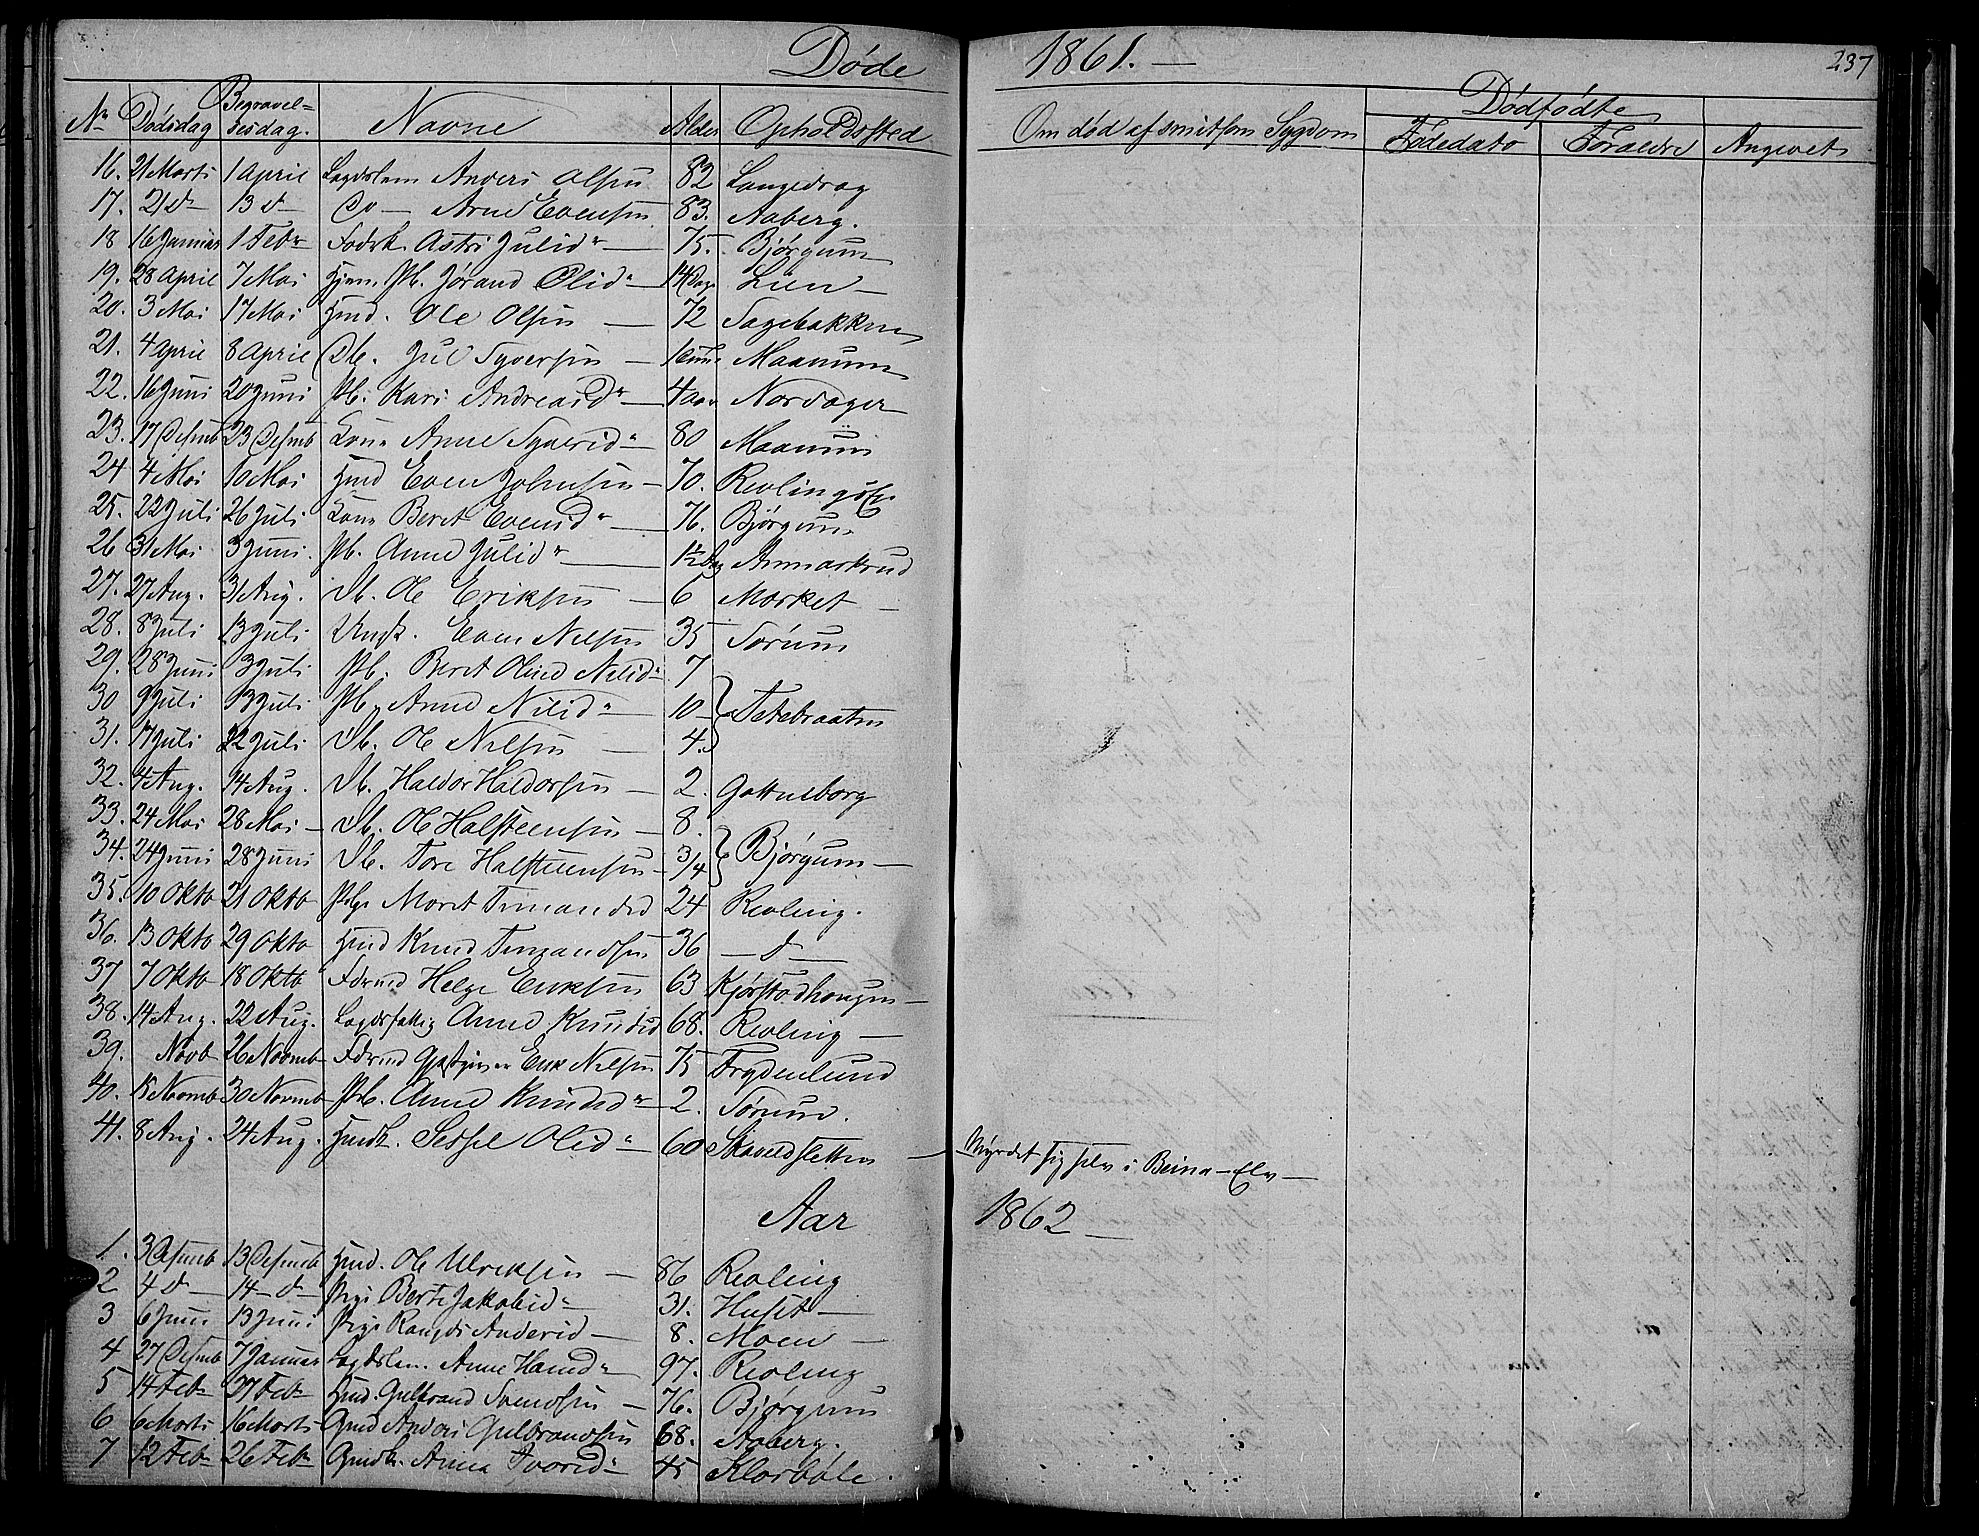 Døde 1861. —
237
Dødfødte
No Dødsdag Begravelsesdag. Navne Alder Opholdssted Om død af smitsom Sygdom Fødedato Forældre Angivet
16. 21 Marts 1 April Lægdslem Anders Olsen 82 Langedrag
17. 21 d— 13 d— Do — Arne Evensen 83. Aaberg.
18 16 Januar 1 Febr Føderk. Astri Julidr — 75. Bjørgum
19. 28 April 7 Mai Hjem. Pb. Jørand Olidr — 14 Dage Lien —
20. 3 Mai 17 Mai Hmd. Ole Olsen — 72 Sagebakken
21. 4 April 8 April Db. Jul Syversen — Maanum
22. 16 Juni 20 Juni Pb. Kari Andreasdr — 4 aar Nordager
23. 17 Desmb 23 Desmb Kone Anne Syveridr — 80 Maanum
24 4 Mai 10 Mai Hmd Even Johnsen — 70. Revlingseie
25. 22 Juli 26 Juli Kone Beret Evensdr — 76. Bjørgum
26 31 Mai 3 Juni. Pb. Anne Julidr — 1½ Dag Anmarkrud
27. 27 Aug. 31 Aug. Db. Ole Eriksen — 6 Mørket —
28. 8 Juli 13 Juli Ungk. Even Nilsen 35 Sørum
29. 28 Juni 3 Juli Pb. Beret Oline Nilsdr 7
30 9 Juli 13 Juli Pb. Anne Nilsdr — 10 — Tetebraaten
31. 17 Juli 22 Juli Db. Ole Nilsen — 4.
32. 4 Aug. 14 Aug. Db. Haldor Haldorsen — 2. Gottneborg
33. 24 Mai 28 Mai — Db. Ole Halsteensen — 8.
34. 24 Juni 28 Juni Db. Tore Halsteensen — 3/4 Bjørgum —
35. 10 Okto 21 Okto Pige Marit Timandsd 24 Revling.
36. 13 Okto 29 Okto Hmd Knud Timandsen 36 — d —
37 7 Okto 18 Okto Fdrmd Helge Eriksen 63 Kjørstadhougen —
38. 14 Aug. 22 Aug. Lægdsfattig Anne Knudsd 68. Revling —
39. Novb 26 Novmb Fdrmd Gjæstgiver Erik Nilsen 75 Frydenlund
40. 15 Novmb 30 Novmb Pb. Anne Knudsdr — 2. Sørum.
41. 8 Aug. 24 Aug. Hmdk. Sessel Olsdr 60 Skaveldsletten — Myrdet sig selv i Beina-Elv —
Aar 1862 —
1. 3 Desmb 13 Desmb Hmd. Ole Ulriksen — 86 Revling
2 4 d — 14 — d — Pige Berte Jakobsdr 31. Huset —
3 6 Juni 13 Juni Pige Rangdi Andersd — 8. Moen —
4 27 Desmb 7 Januar Lægdslem. Anne Hansdr 97. Revling
5 14 Febr 27 Febr Hmd. Gulbrand Svendsen — 76. Bjørgum
6 6 Marts 16 Marts Gmd Anders Gulbrandsen 68. Aaberg.
7 12 Febr 26 Febr Gmdk. Anna Ivarsdr 45 Klosbøle.